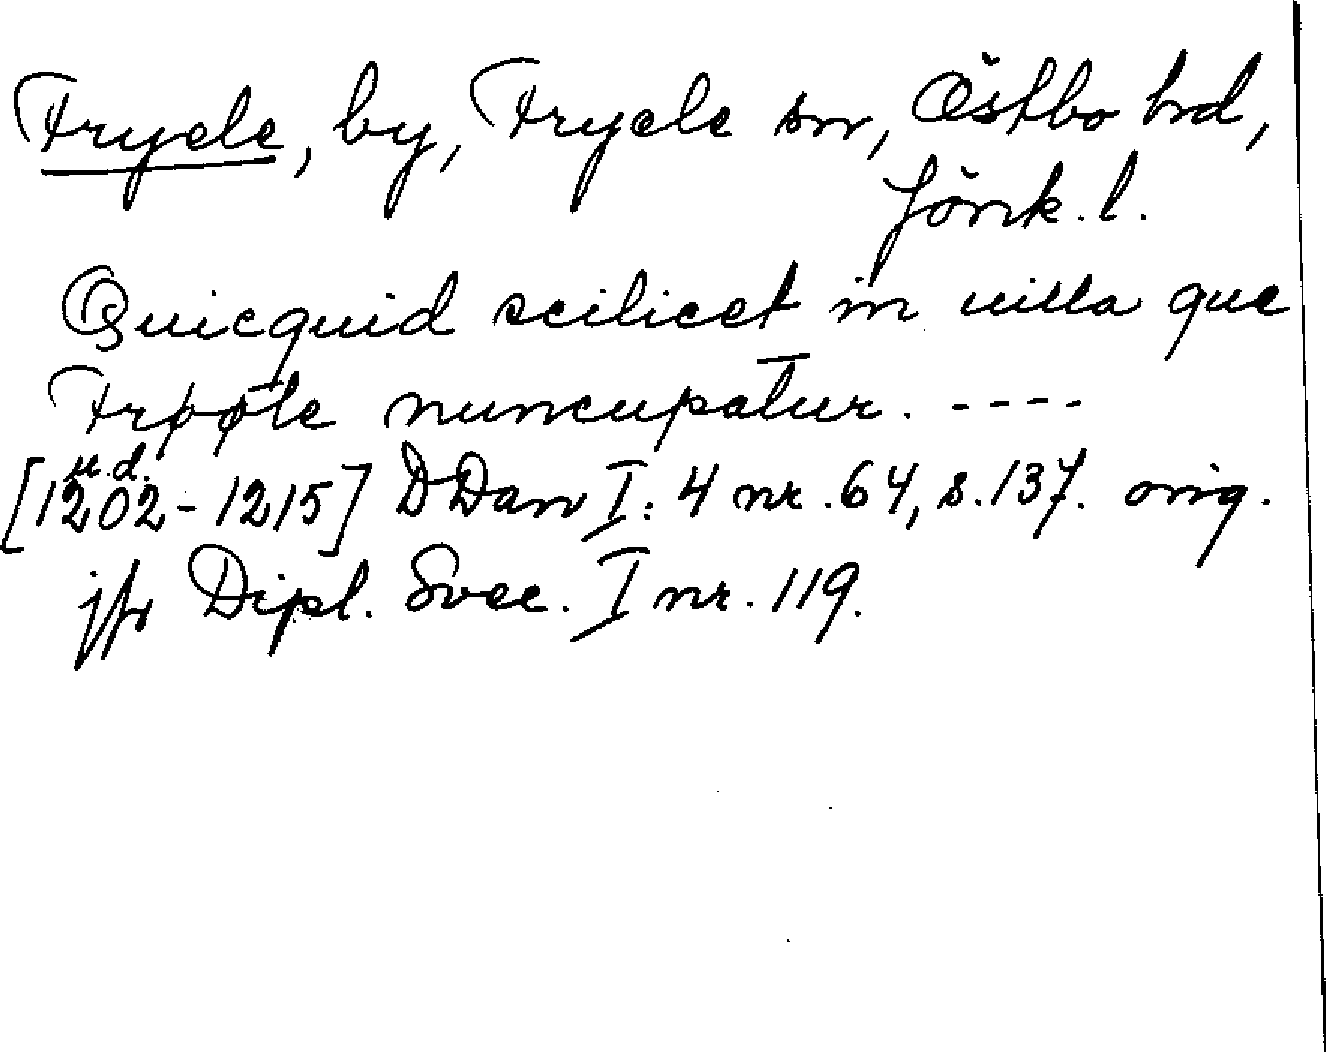 Fryele, by, Fryele sn, Östbo hd,
Jönk. l.
Quicquid scilicet in uilla que
Frøøle nuncupatur. ----
u.d.
[1202-1215] DDan I: 4 nr. 64, s. 137. orig.
jfr Dipl. Svec. I nr. 119.